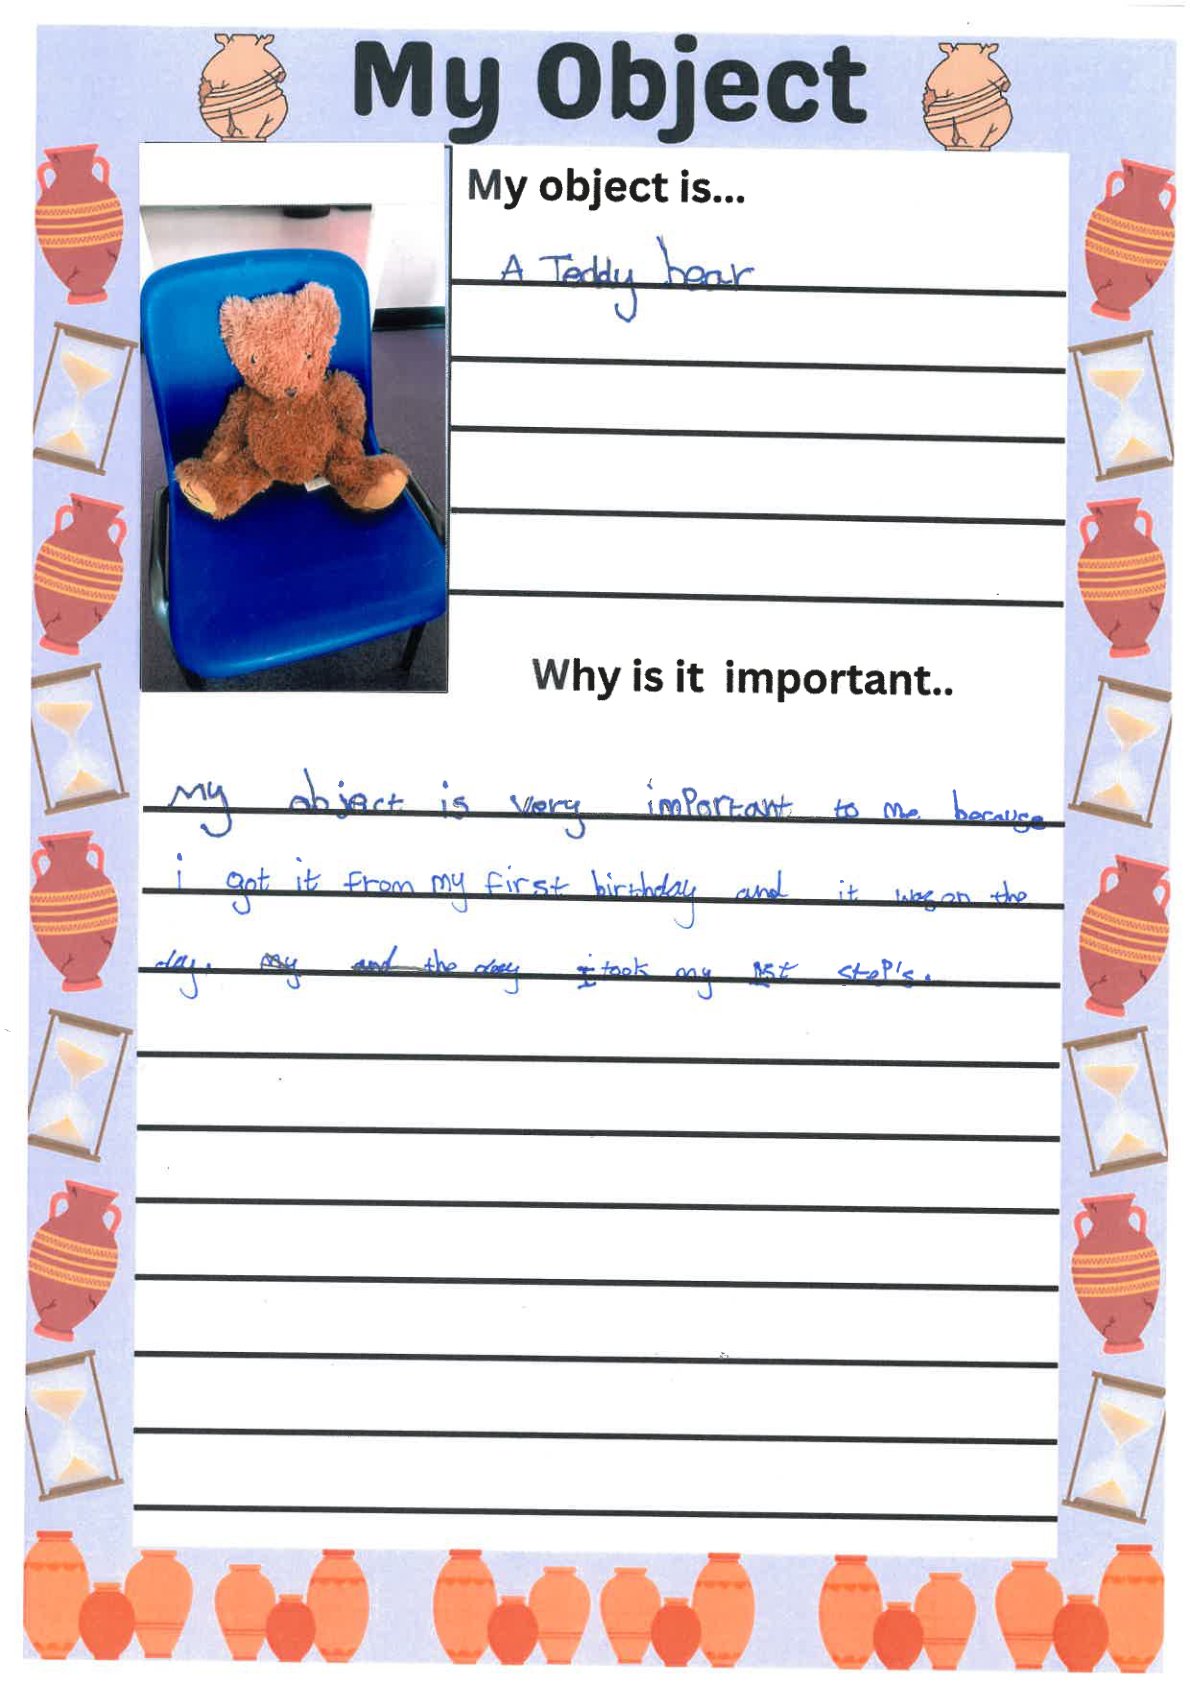 My Object
My object is...
A Teddy bear
Why is it important..
My object is very important to me because
i got it from my first birthday and it was on the
day. My and the day i took my 1st steP's.